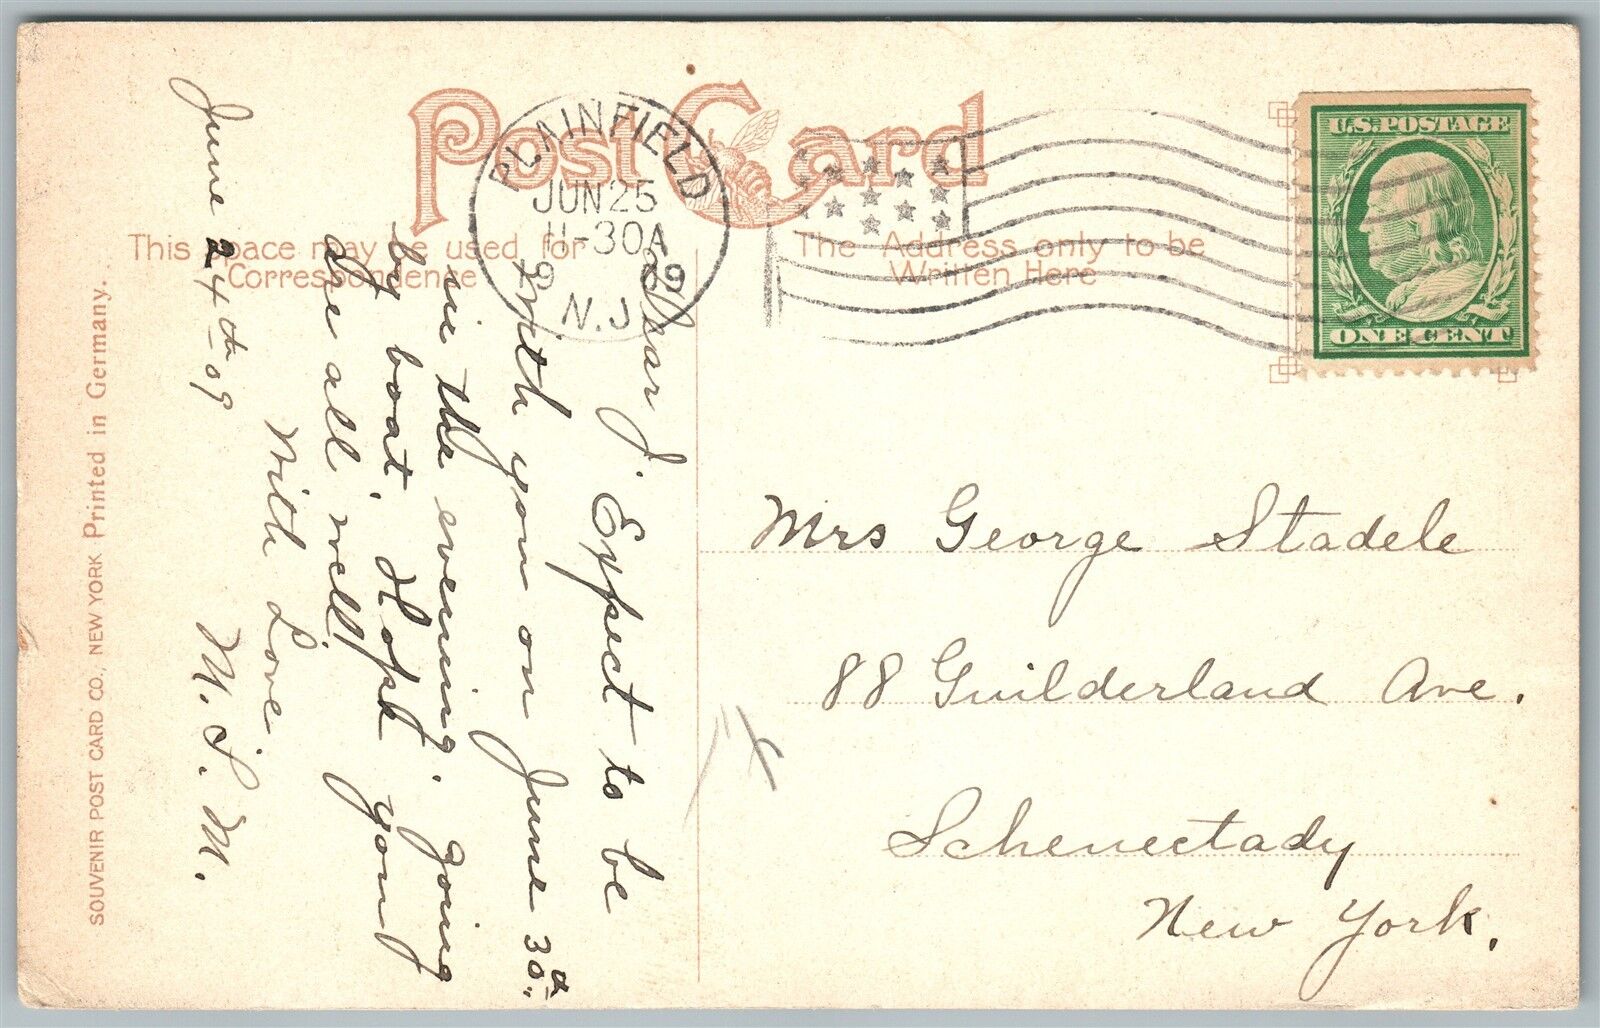 Post Card
This space may be used for
Correspondence
The Address only to be
Written Here
PLAINFIELD
JUN 25
11-30A
1909
N.J.
U.S. POSTAGE
ONE CENT
June 24th 09
Dear J. Expect to be
with you on June 30th
in the evening. going
by boat. Hope you
are all well.
With Love
M. S. M.
Mrs George Stadele
88 Guilderland Ave.
Schenectady
New York.
SOUVENIR POST CARD CO., NEW YORK Printed in Germany.